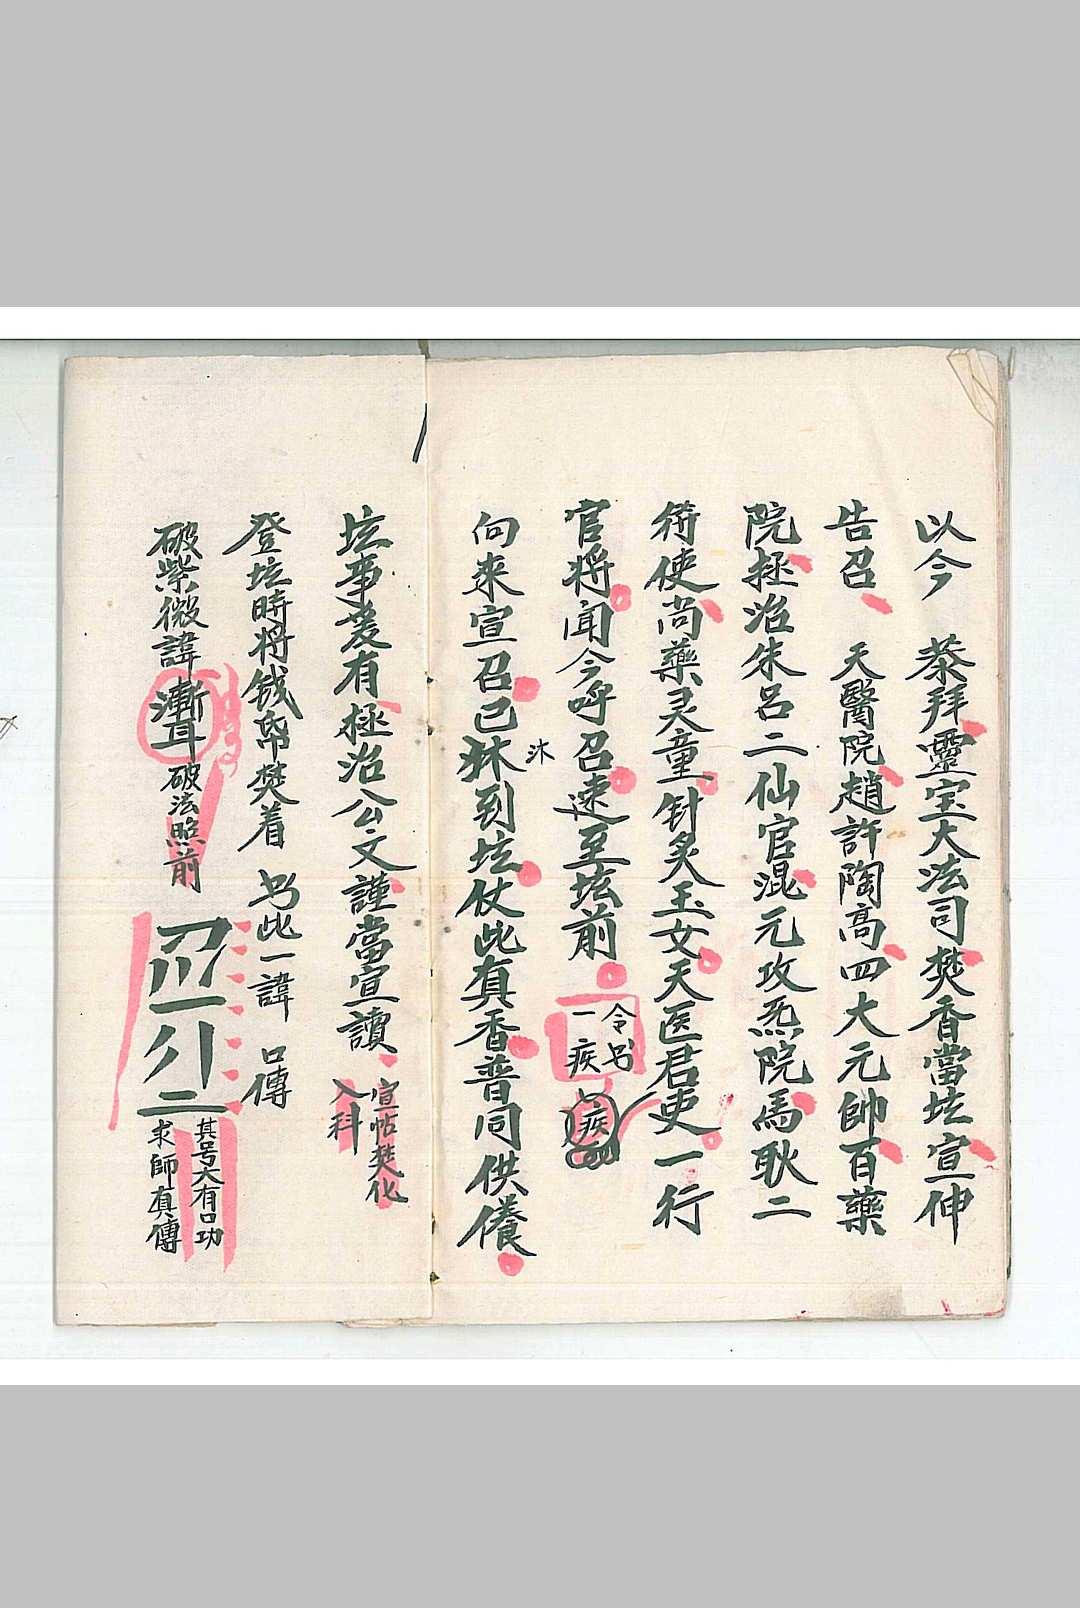 以今 恭拜靈宝大法司焚香當坛宣伸
告召 天醫院趙許陶高四大元帥百藥
院拯治朱呂二仙官混元攻炁院馬耿二
符使尚藥灵童针炙玉女天医君吏一行
官将闻今呼召速至坛前
令书
一疾
疾
向来宣召已 沐到坛仗此真香普同供養
坛事爰有拯治公文謹當宣讀
宣帖焚化
入科
登坛時将錢帛焚着 书此一諱 口傳
破紫微諱 破法照前
其号大有口功
求師真傳